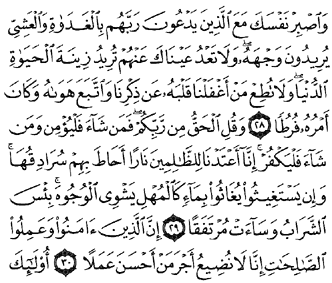 وَٱصْبِرْ نَفْسَكَ مَعَ ٱلَّذِينَ يَدْعُونَ رَبَّهُم بِٱلْغَدَوٰةِ وَٱلْعَشِىِّ
يُرِيدُونَ وَجْهَهُۥ ۖ وَلَا تَعْدُ عَيْنَاكَ عَنْهُمْ تُرِيدُ زِينَةَ ٱلْحَيَوٰةِ
ٱلدُّنْيَا ۖ وَلَا تُطِعْ مَنْ أَغْفَلْنَا قَلْبَهُۥ عَن ذِكْرِنَا وَٱتَّبَعَ هَوَىٰهُ وَكَانَ
أَمْرُهُۥ فُرُطًا ٢٨ وَقُلِ ٱلْحَقُّ مِن رَّبِّكُمْ ۖ فَمَن شَآءَ فَلْيُؤْمِن وَمَن
شَآءَ فَلْيَكْفُرْ ۚ إِنَّآ أَعْتَدْنَا لِلظَّٰلِمِينَ نَارًا أَحَاطَ بِهِمْ سُرَادِقُهَا ۚ
وَإِن يَسْتَغِيثُوا۟ يُغَاثُوا۟ بِمَآءٍ كَٱلْمُهْلِ يَشْوِى ٱلْوُجُوهَ ۚ بِئْسَ
ٱلشَّرَابُ وَسَآءَتْ مُرْتَفَقًا ٢٩ إِنَّ ٱلَّذِينَ ءَامَنُوا۟ وَعَمِلُوا۟
ٱلصَّٰلِحَٰتِ إِنَّا لَا نُضِيعُ أَجْرَ مَنْ أَحْسَنَ عَمَلًا ٣٠ أُو۟لَٰٓئِكَ